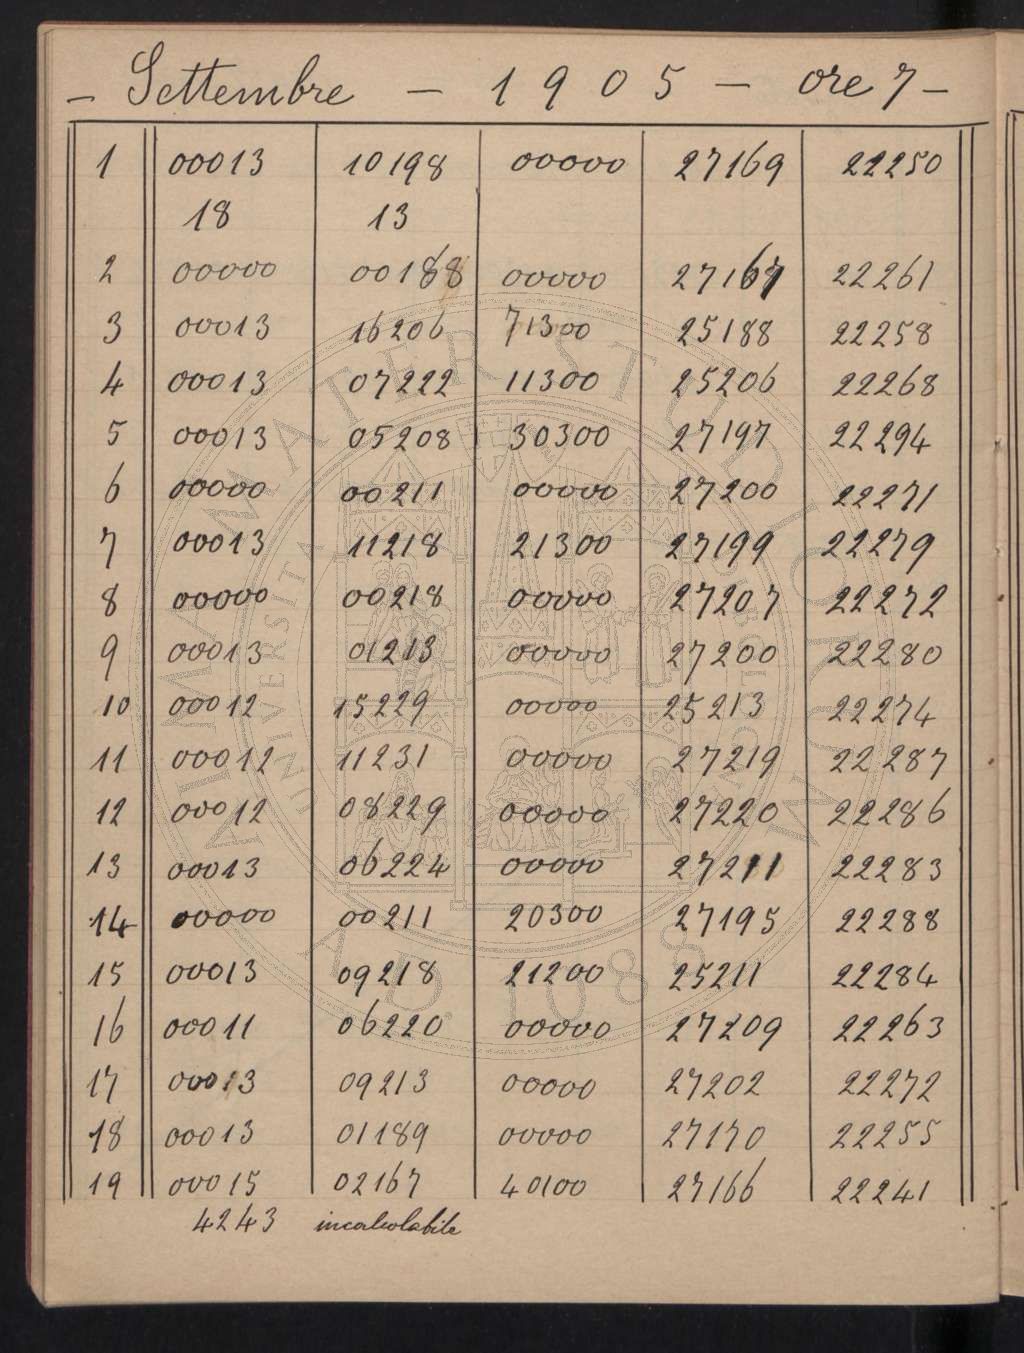 - Settembre - 1905 - ore 7 -
1 00013 10198 00000 27169 22250
18 13
2 00000 00188 00000 27167 22261
3 00013 16206 71300 25188 22258
4 00013 07222 11300 25206 22268
5 00013 05208 30300 27197 22294
6 00000 00211 00000 27200 22271
7 00013 11218 21300 27199 22279
8 00000 00218 00000 27207 22272
9 00013 01213 00000 27200 22280
10 00012 15229 00000 25213 22274
11 00012 11231 00000 27219 22287
12 00012 08229 00000 27220 22286
13 00013 06224 00000 27211 22283
14 00000 00211 20300 27195 22288
15 00013 09218 21200 25211 22284
16 00011 06220 00000 27209 22263
17 00013 09213 00000 27202 22272
18 00013 01189 00000 27170 22255
19 00015 02167 40100 27166 22241
4243 incalcolabile
ALMA MATER STUDIORUM
A.D. 1088